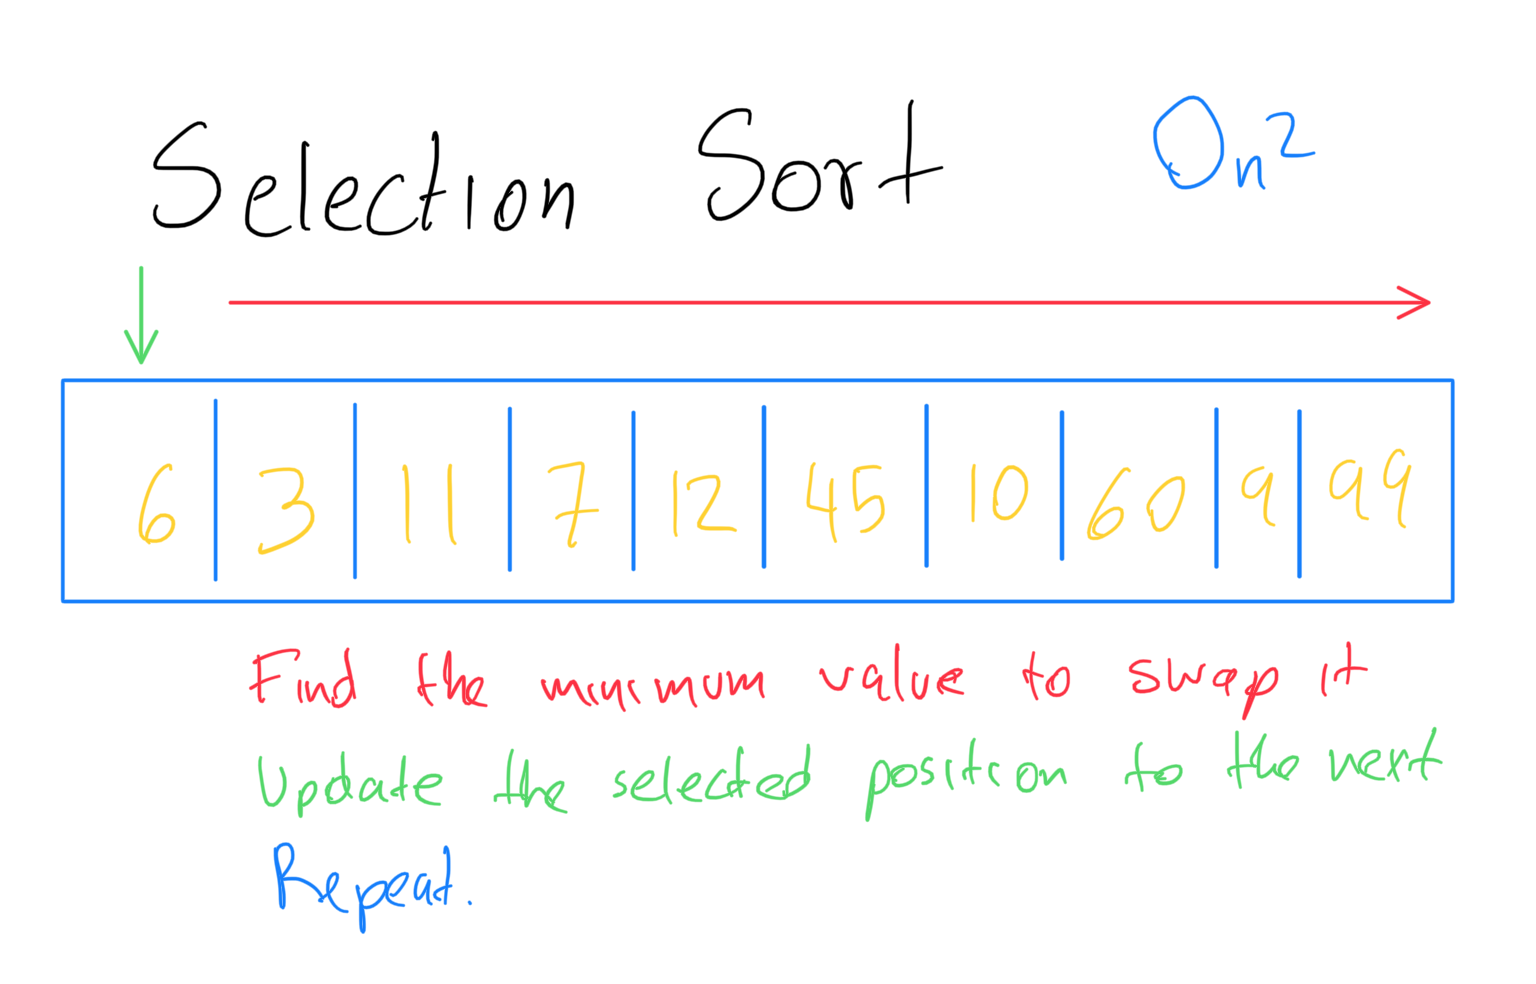 Selection Sort On²
6 3 11 7 12 45 10 60 9 99
Find the minimum value to swap it
Update the selected position to the next
Repeat.